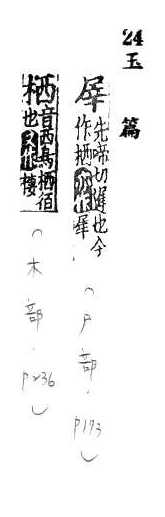 24 玉篇
屖 先啼切遟也今
作栖亦作
(尸部. p193)
栖 音西鳥栖宿
也又作棲
(木部. p236)